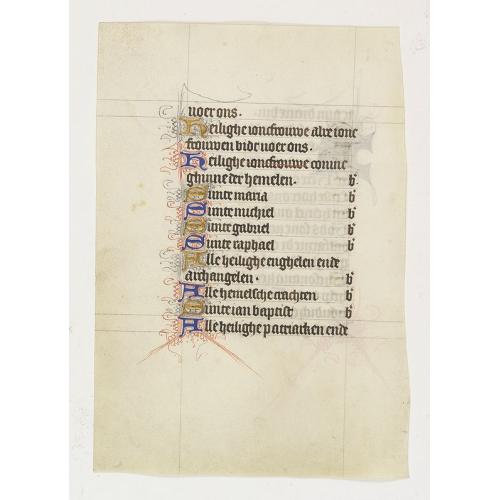 voer ons.
Heilighe ioncfrouwe alre ionc
frouwen bidt voer ons.
Heilighe ioncfrouwe coninc
ghinne der hemelen. b'.
Sinte maria b'
Sinte michiel b'
Sinte gabriel b'
Sinte raphael b'
Alle heilighe enghelen ende
archangelen. b'
Alle hemelsche crachten b'
Sinte ian baptist b'
Alle heilighe patriarken ende